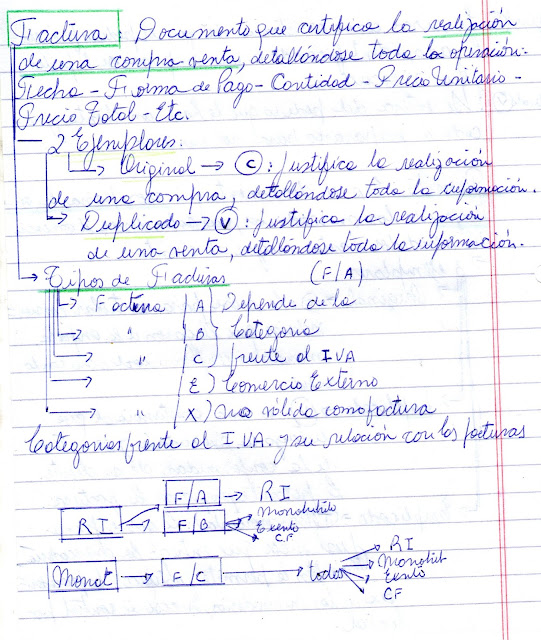 Factura: Documento que certifica la realización
de una compra venta, detallándose toda la operación:
Fecha - Forma de Pago - Cantidad - Precio Unitario -
Precio Total - Etc.
2 Ejemplares:
Original → C : Justifica la realización
de una compra, detallándose toda la información.
Duplicado → V : Justifica la realización
de una venta, detallándose toda la información.
Tipos de Facturas (F/A)
Factura A } Depende de la
" B } Categoría
" C } frente al IVA
E ) Comercio Externo
" X ) No válida como factura
Categorías frente al I.VA. y su relación con las facturas
RI → F/A → RI
F/B → Monotributo
Exento
C.F
Monot → F/C → todos → RI
Monotribut
Exento
CF